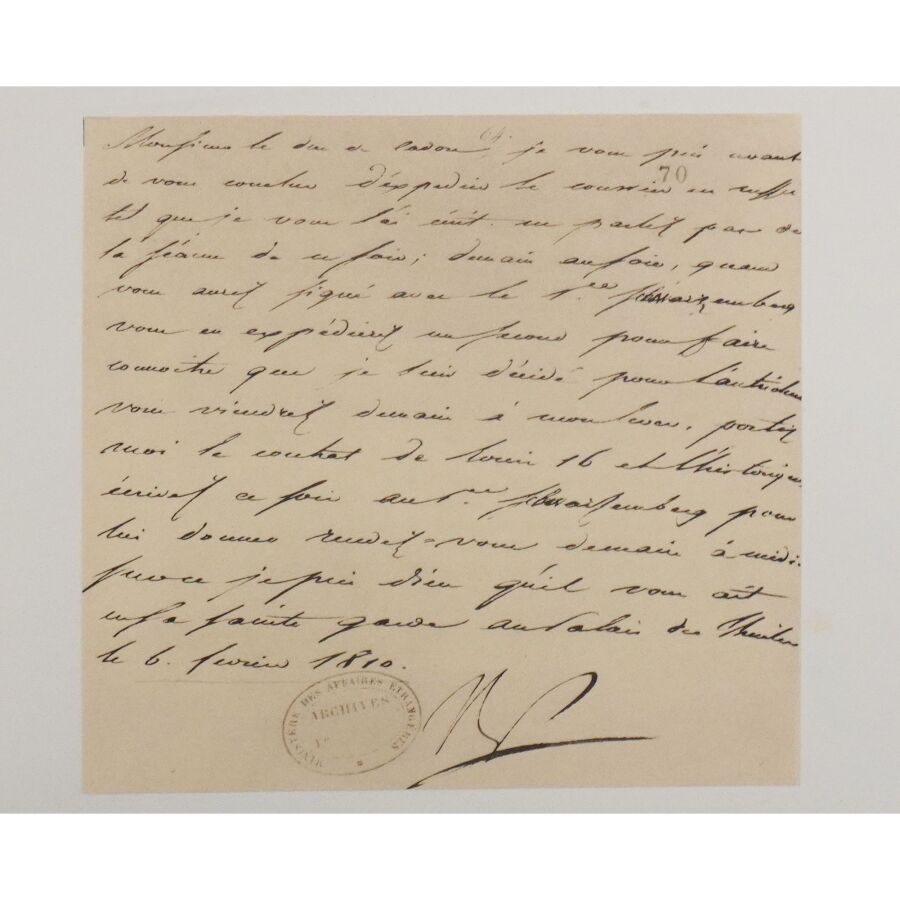 64.
Monsieur le duc de Cadore, je vous prie avant
70
de vous coucher d'éxpédier le courrier en russie
tel que je vous l'ai écrit. ne parlez pas de
la séance de ce soir; demain au soir, quand
vous aurez signé avec le P.ce Schwarzemberg
vous en expédierez un second pour faire
connoitre que je suis décidé pour l'autrichienne
vous viendrez demain à mon lever, portez
moi le contrat de Louis 16 et l'historique,
écrivez ce soir au P.ce Schwarzemberg pour
lui donner rendez-vous demain à midi.
sur ce je prie dieu qu'il vous ait
en sa sainte garde au Palais des Thuileries
le 6. fevrier 1810.
MINISTÈRE DES AFFAIRES ÉTRANGÈRES
ARCHIVES